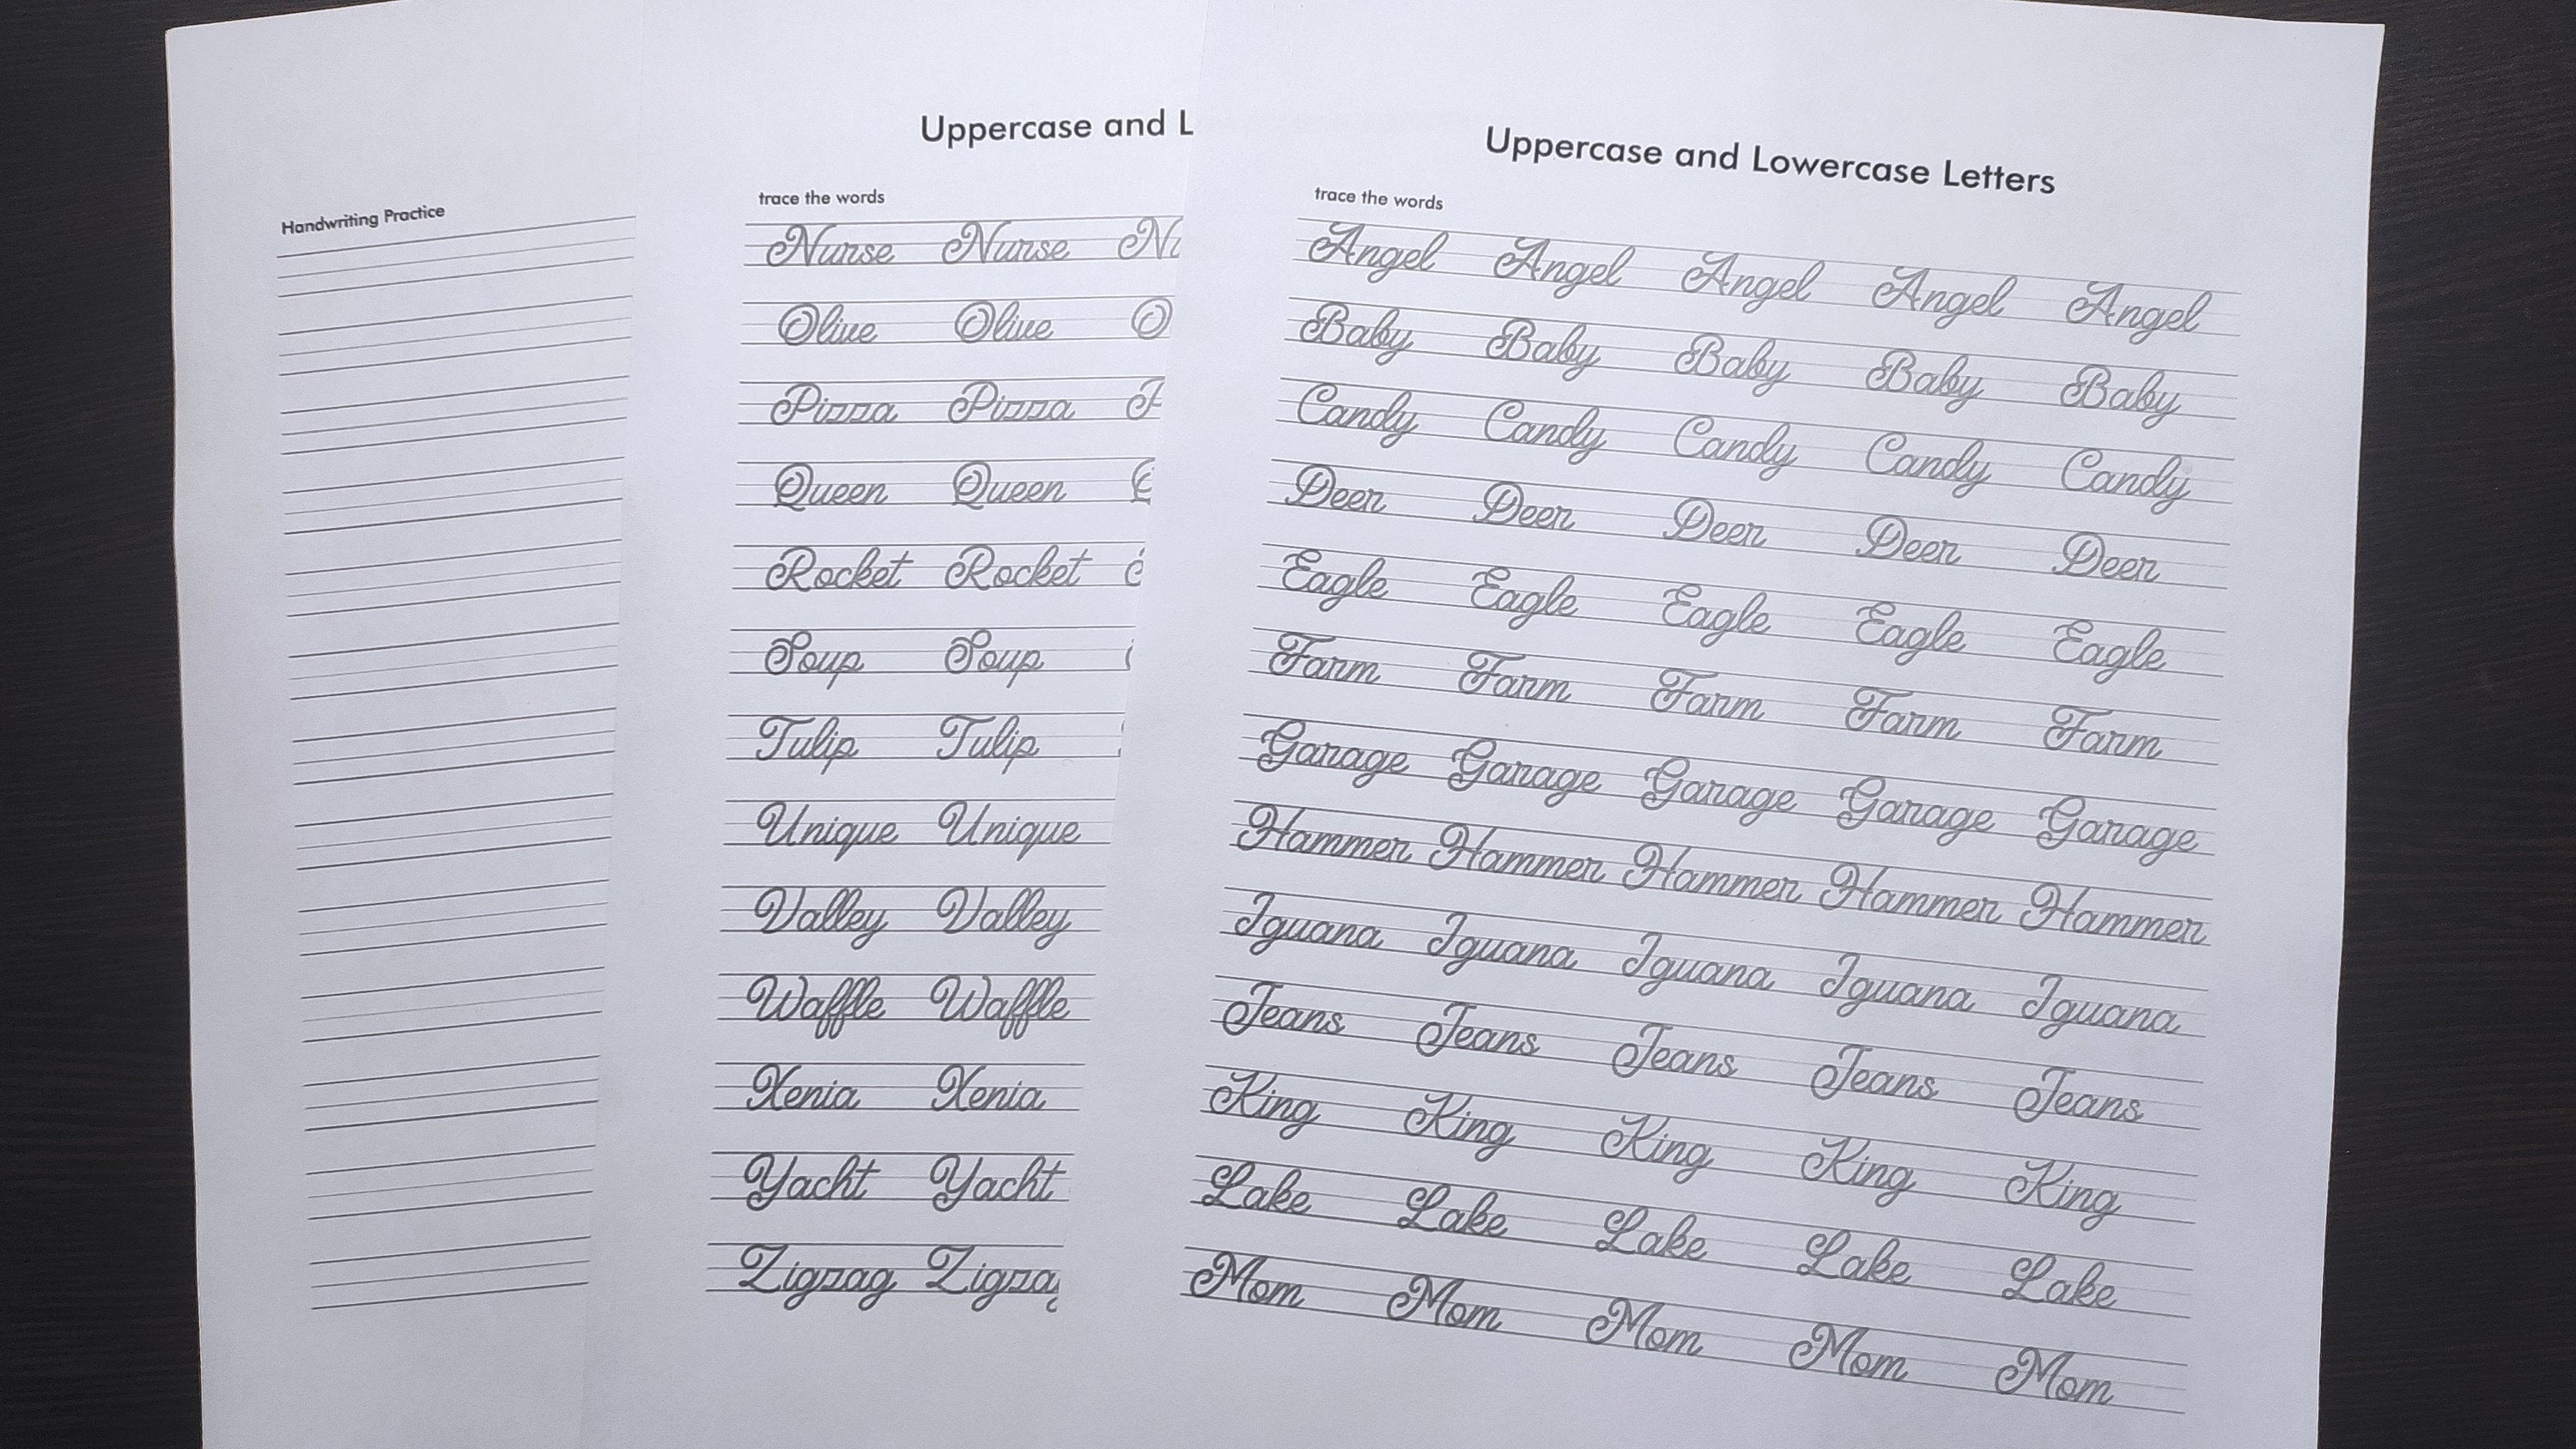 Handwriting Practice
Uppercase and L
trace the words
Nurse Nurse
Olive Olive O
Pizza Pizza
Queen Queen
Rocket Rocket
Soup Soup
Tulip Tulip
Unique Unique
Valley Valley
Waffle Waffle
Xenia Xenia
Yacht Yacht
Zigzag Zigzag
Uppercase and Lowercase Letters
trace the words
Angel Angel Angel Angel Angel
Baby Baby Baby Baby Baby
Candy Candy Candy Candy Candy
Deer Deer Deer Deer Deer
Eagle Eagle Eagle Eagle Eagle
Farm Farm Farm Farm Farm
Garage Garage Garage Garage Garage
Hammer Hammer Hammer Hammer Hammer
Iguana Iguana Iguana Iguana Iguana
Jeans Jeans Jeans Jeans Jeans
King King King King King
Lake Lake Lake Lake Lake
Mom Mom Mom Mom Mom